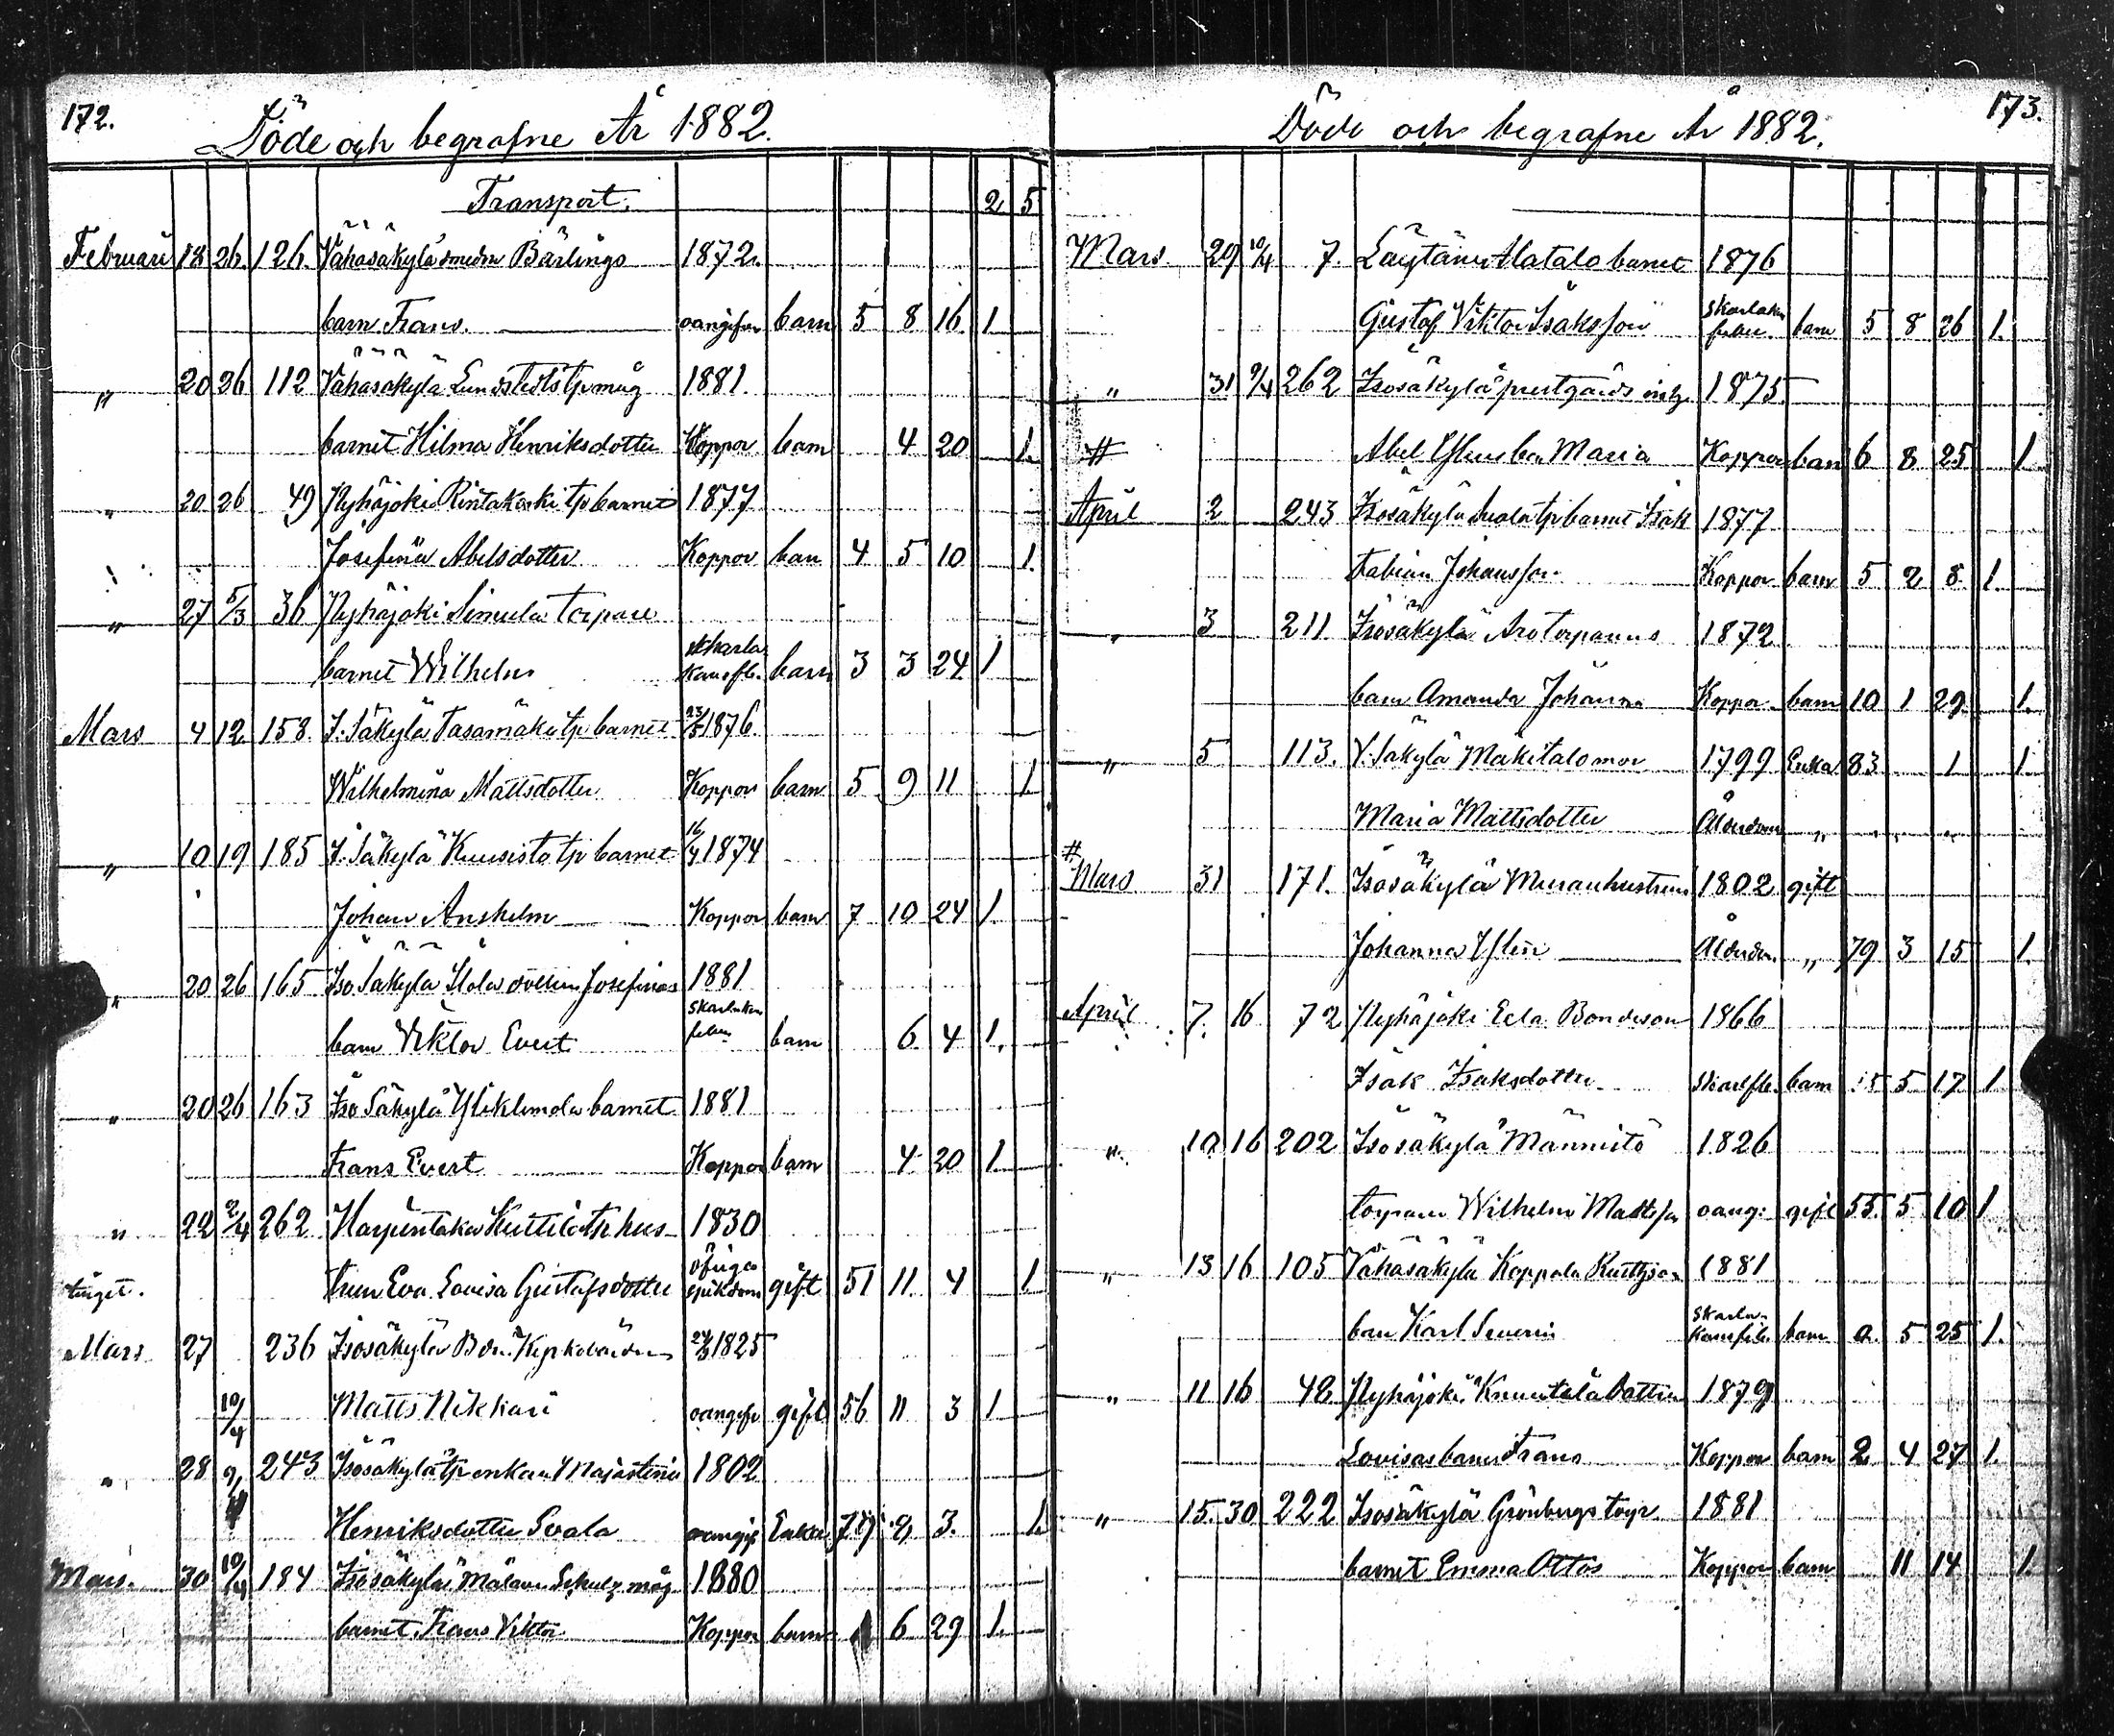 172.
Döde och begrafne År 1882.
Transport. 2 5
Februari 18 26. 126. Vähäsäkylä smeden Bärlings 1872.
barn Frans. oangifven barn 5 8 16 1
" 20 26 112 Vähäsäkylä Lundstedts tp måg 1881.
barnet Hilma Henriksdotter Koppor barn 4 20 1.
" 20 26 49 Pyhäjoki Rintakoski tp barnet 1877
Josefina Abelsdotter Koppor barn 4 5 10 1.
" 27 5/3 36 Pyhäjoki Simula torpare
barnet Wilhelm barn 3 3 24 1
Mars 4 12 158. I. Säkylä Tasamäki tp barnet 1876.
Wilhelmina Mattsdotter Koppor barn 5 9 11 1
" 10 19 185 I. Säkylä Kuusisto tp barnet 16/4 1874
Johan Anshelm Koppor barn 7 10 24 1.
" 20 26 165 Iso Säkylä Josefinas 1881
barn Viktor Evert Skarlakans feber barn 6 4 1.
" 20 26 163 Iso Säkylä barnet 1881
Frans Evert Koppor barn 4 20 1
" 22 2/4 262 Karpintaka hus- 1830
trun Eva Lovisa Gustafsdotter öfriga sjukdom gift 51 11 4 1
Mars 27 236 Isosäkylä 1825
10/4 Matts Nikkari oangifv gift 56 11 3 1
" 28 9/4 243 Isosäkylä tp enkan Maja Stina 1802
Henriksdotter Soala oangif Enka 79 9 3. 1.
Mars. 30 10/4 184 Isosäkylä måg 1880
barnet Frans Viktor Koppor barn 1 6 29 1.
173.
Döde och begrafne År 1882.
Mars 29 10/4 7. Löytäne Alatalo barnet 1876
Gustaf Viktor Isaksson Skarlakans feber barn 5 8 26 1.
" 31 9/4 262 Isosäkylä prestgårds inh. 1875
# Abel barn Maria Koppor barn 6 8 25 1
April 2 243 Isosäkylä Soala tp barnet Isak 1877
Fabian Johansson Koppor barn 5 2 8 1.
" 3 211 Isosäkylä Aro torparens 1872
barn Amanda Johanna Koppor barn 10 1 29. 1.
" 5 113. V. Säkylä Mäkitalo mor 1799 Enka 83 1 1
Maria Mattsdotter Ålderdom "
# Mars 31 171. Isosäkylä hustrun 1802 gift
Johanna Ålderdom. " 79 3 15 1.
April 7. 16 72 Pyhäjoki Eela Bondeson 1866
Isak Isaksdotter Skarlfb. barn 15 5 17 1
" 10 16 202 Isosäkylä Männistö 1826
torparen Wilhelm Mattsson oang: gift 55 5 10 1
" 13 16 105 Vähäsäkylä Koppala 1881
barn Karl Severin Skarlakansfeb. barn 0 5 25 1.
" 11 16 48 Pyhäjoki Knuutila dottren 1879
Lovisas barn Frans Koppor barn 2 4 27 1.
" 15. 30 222 Isosäkylä Grönbergs torp. 1881
barnet Emma Ottos Koppor barn 11 14 1.